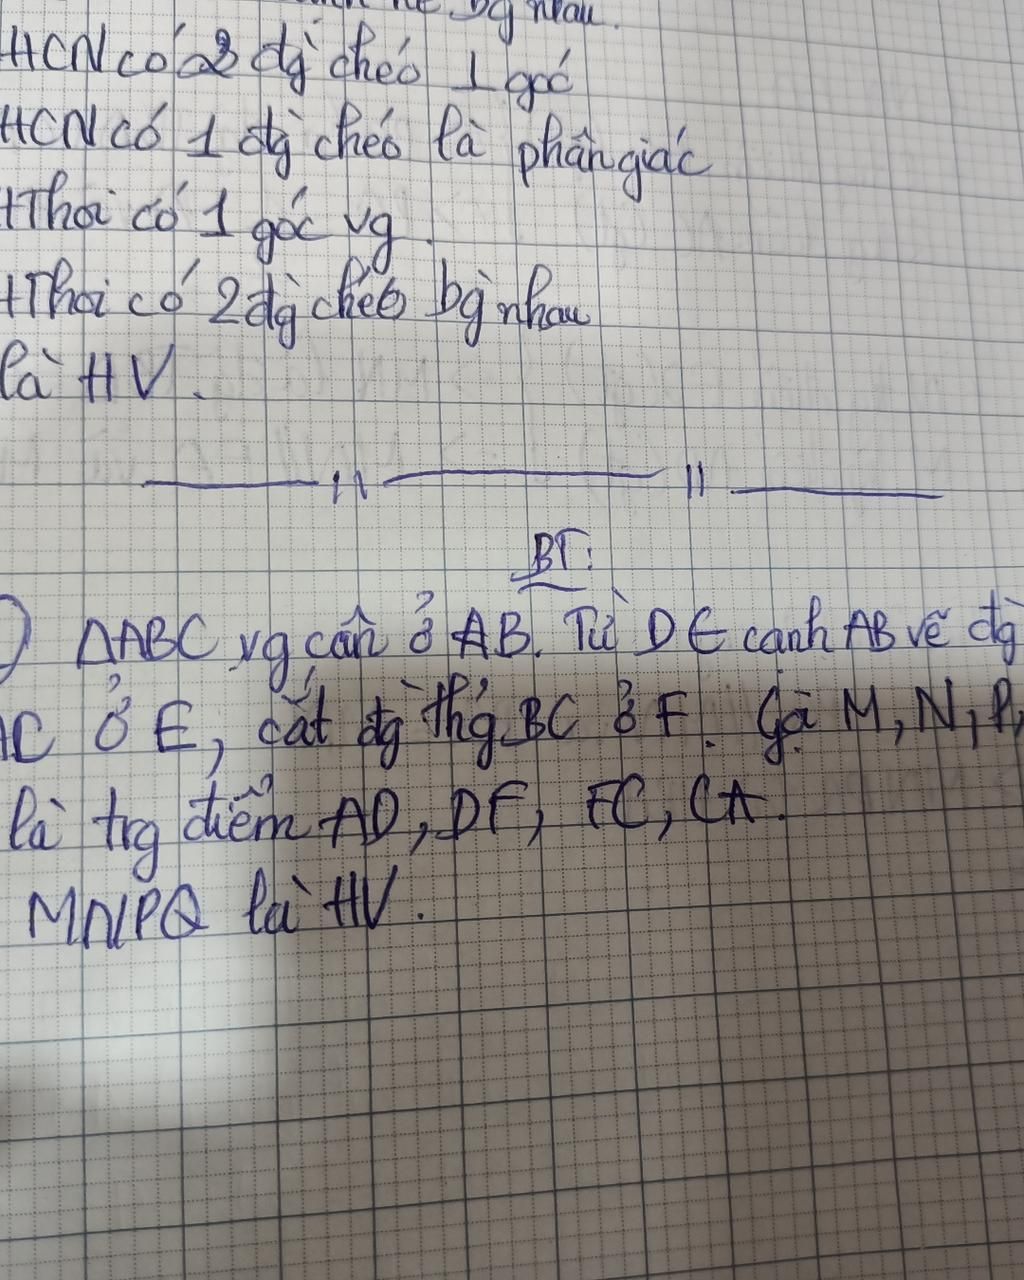 bg nhau.
HCN có 2 đg̀ chéo ⊥ góc
HCN có 1 đg̀ chéo là phân giác
HThoi có 1 góc vg.
HThoi có 2 đg̀ chéo bg̀ nhau
là HV.
BT:
) ΔABC vg cân ở AB. Từ D ∈ cạnh AB vẽ đg̀
AC ở E, cắt đg̀ thg̉ BC ở F. Gọi M, N, P,
là trg điểm AD, DF, FC, CA.
MNPQ là HV.